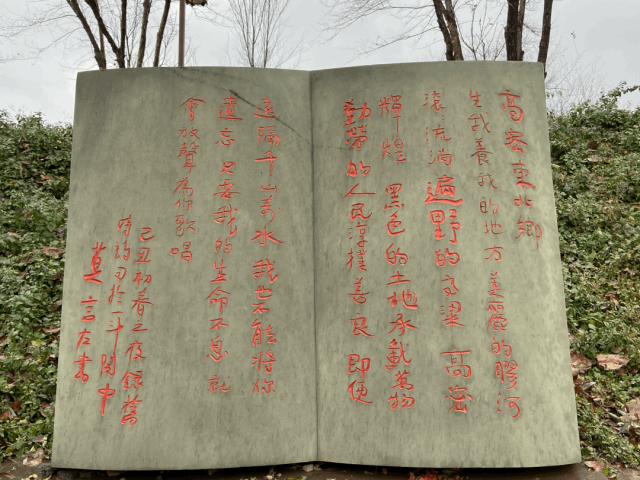 高密東北鄉
生我養我的地方 美麗的膠河
滾滾流淌 遍野的高粱 高密
輝煌 黑色的土地承載萬物
勤勞的人民淳樸善良 即便
遠隔千山萬水 我也不能將你
遺忘 只要我的生命不息 就
會放聲為你歌唱
己丑初春之夜 錄舊
時詞句於一斗閣中
莫言左書